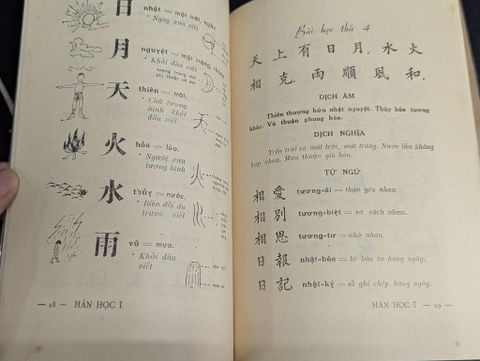 日 nhật = mặt trời, ngày
• Ngày xưa viết
月 nguyệt = mặt trăng, tháng
• Khởi đầu viết
天 thiên = trời.
• Chữ tượng hình khởi đầu viết
火 hỏa = lửa.
• Người xưa tượng hình
水 thủy = nước.
• Biến đổi do trước viết
雨 vũ = mưa.
• Khởi đầu viết
— 28 HÁN HỌC I
Bài học thứ 4
天 上 有 日 月 . 水 火
相 克 . 雨 順 風 和 .
DỊCH ÂM
Thiên thượng hữu nhật nguyệt. Thủy hỏa tương
khắc. Vũ thuận phong hòa.
DỊCH NGHĨA
Trên trời có mặt trời, mặt trăng. Nước lửa không
hợp nhau. Mưa thuận gió hòa.
TỪ NGỮ
相 愛 tương-ái = thương yêu nhau
相 別 tương-biệt = xa cách nhau.
相 思 tương-tư = nhớ nhau.
日 報 nhật-báo = tờ báo ra hàng ngày.
日 記 nhật-ký = sổ ghi chép hàng ngày.
HÁN HỌC I 29 —